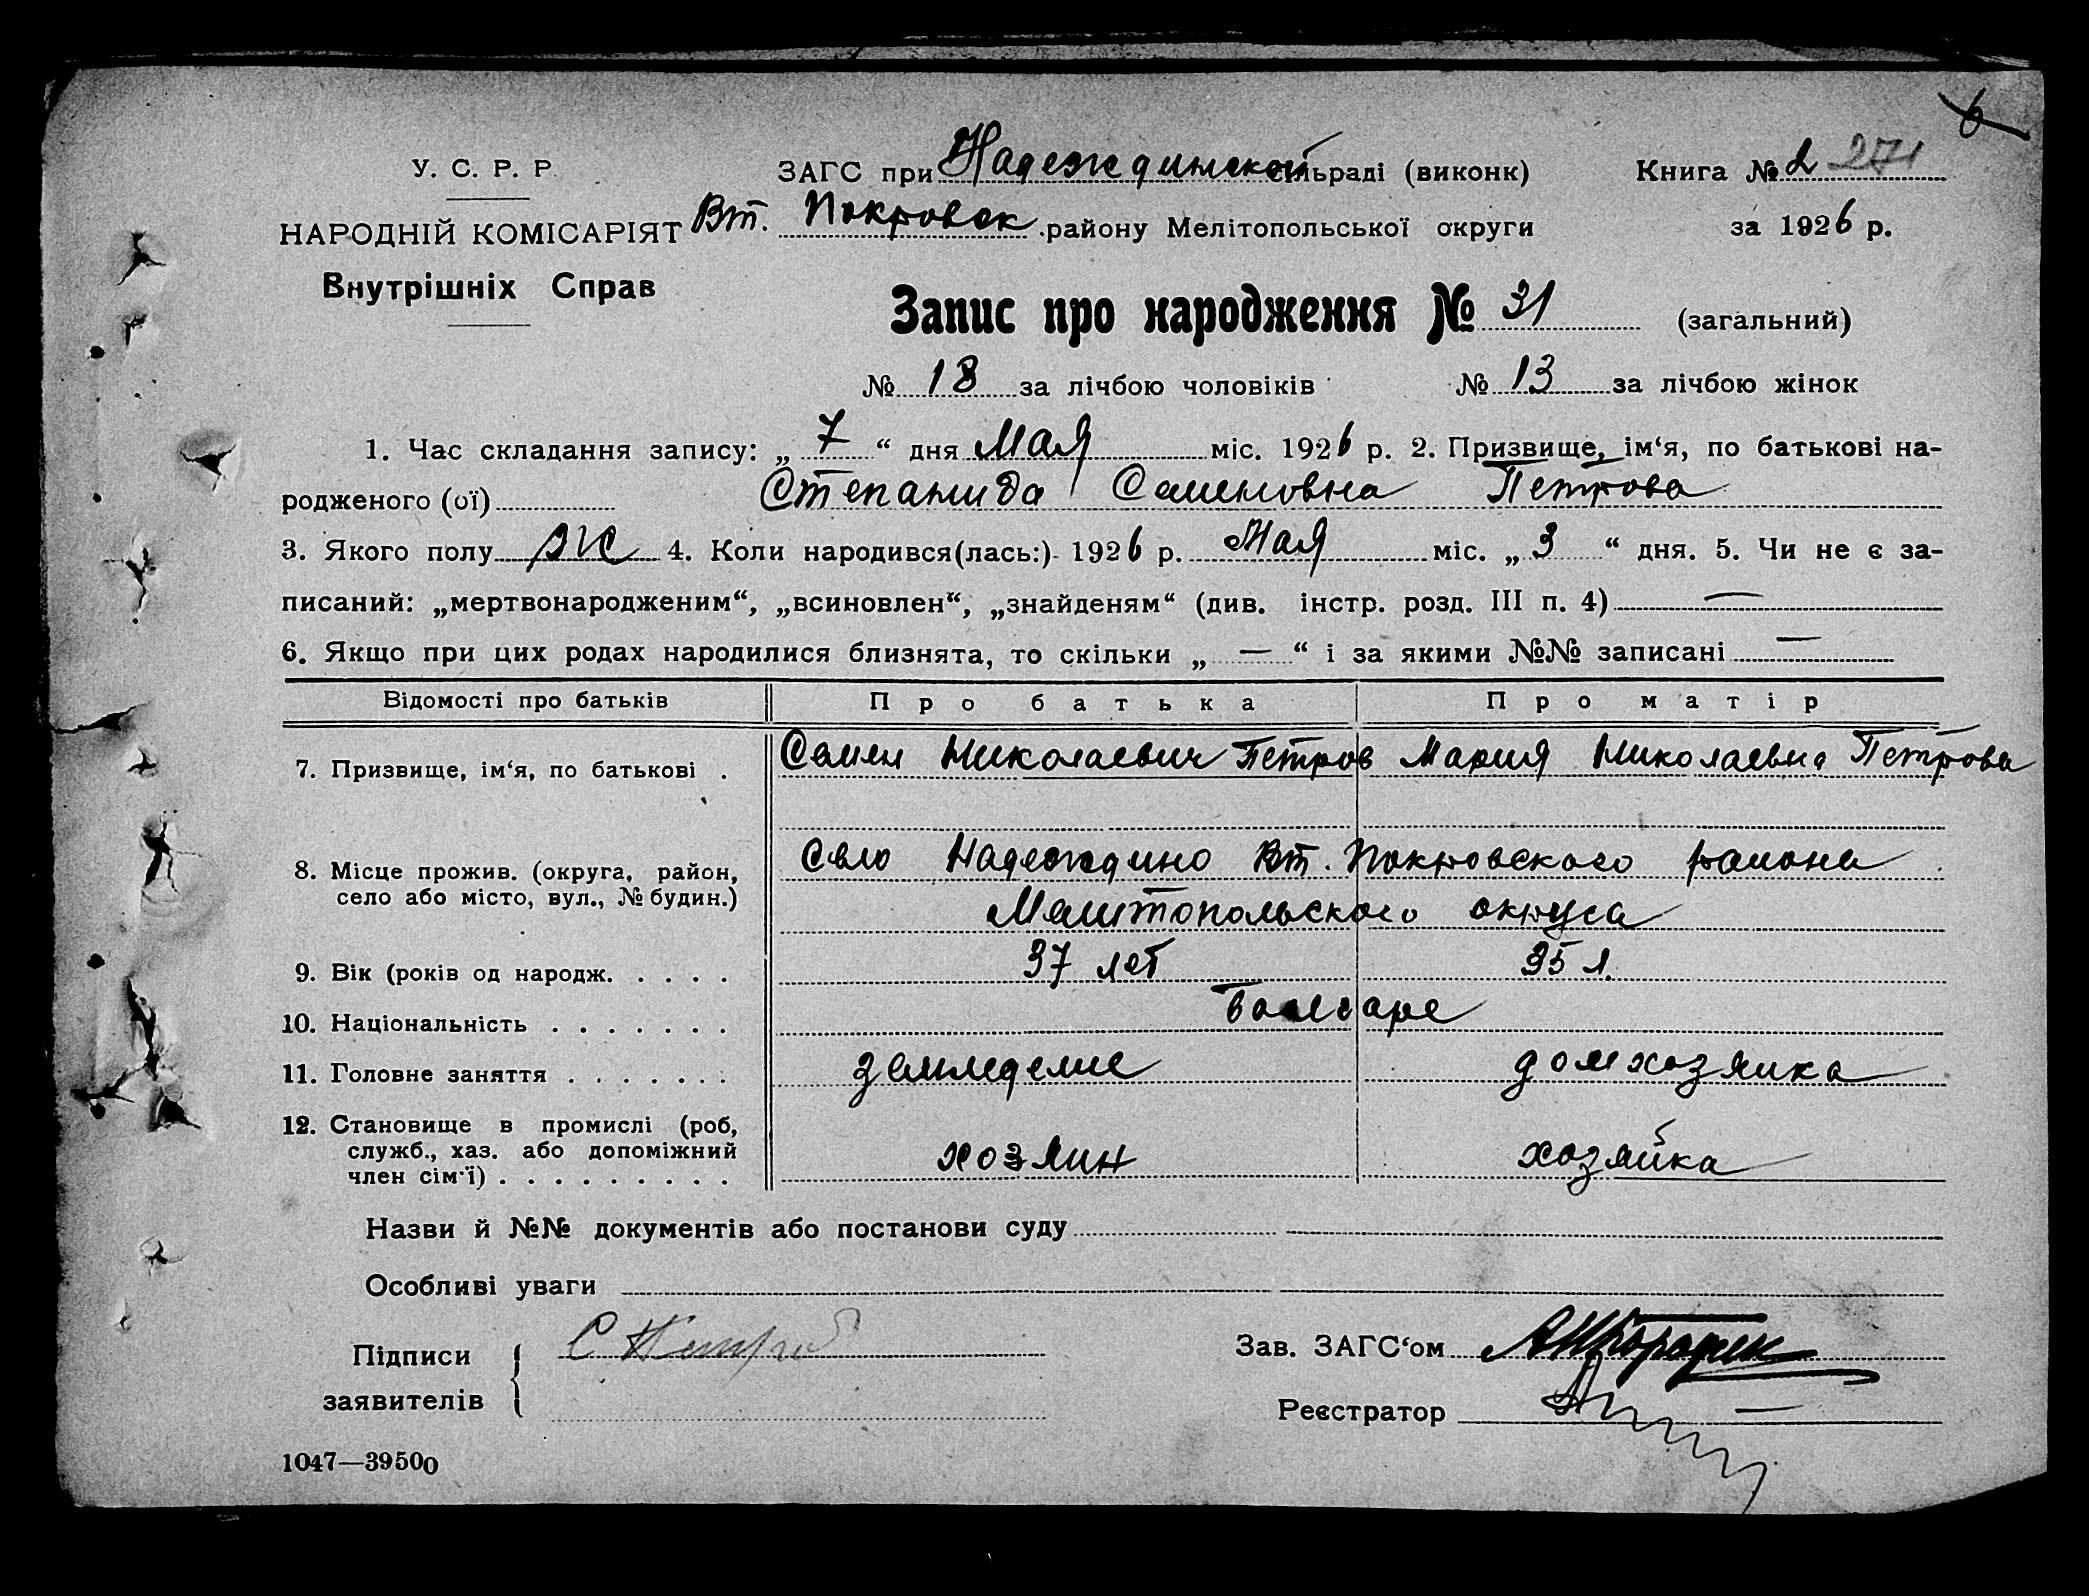 6
У. С. Р. Р. ЗАГС при Надеждинской сільраді (виконк) Книга № 2 271
НАРОДНІЙ КОМІСАРІЯТ Вт. Покровск. району Мелітопольської округи за 1926 р.
Внутрішніх Справ
Запис про народження № 31 (загальний)
№ 18 за лічбою чоловіків № 13 за лічбою жінок
1. Час складання запису: „ 7 “ дня Мая міс. 1926 р. 2. Призвище, ім‘я, по батькові на-
родженого (ої) Степанида Семеновна Петрова
3. Якого полу ж 4. Коли народився(лась:) 1926 р. Мая міс. „ 3 “ дня. 5. Чи не є за-
писаний: „мертвонародженим“, „всиновлен“, „знайденям“ (див. інстр. розд. III п. 4) —
6. Якщо при цих родах народилися близнята, то скільки „ — “ і за якими №№ записані —
Відомості про батьків Про батька Про матір
7. Призвище, ім‘я, по батькові . Семен Николаевич Петров Мария Николаевна Петрова
8. Місце прожив. (округа, район, Село Надеждино Вт. Покровского района
село або місто, вул., № будин.) Мелитопольского округа
9. Вік (років од народж. . . . . 37 лет 35 л.
10. Національність . . . . . . . Болгаре
11. Головне заняття . . . . . . . земледелие домхозяика
12. Становище в промислі (роб,
служб., хаз. або допоміжний хозяин хозяйка
член сім‘ї) . . . . . . . . .
Назви й №№ документів або постанови суду
Особливі уваги
Підписи С Петров Зав. ЗАГС‘ом
заявителів Реєстратор —
1047—39500